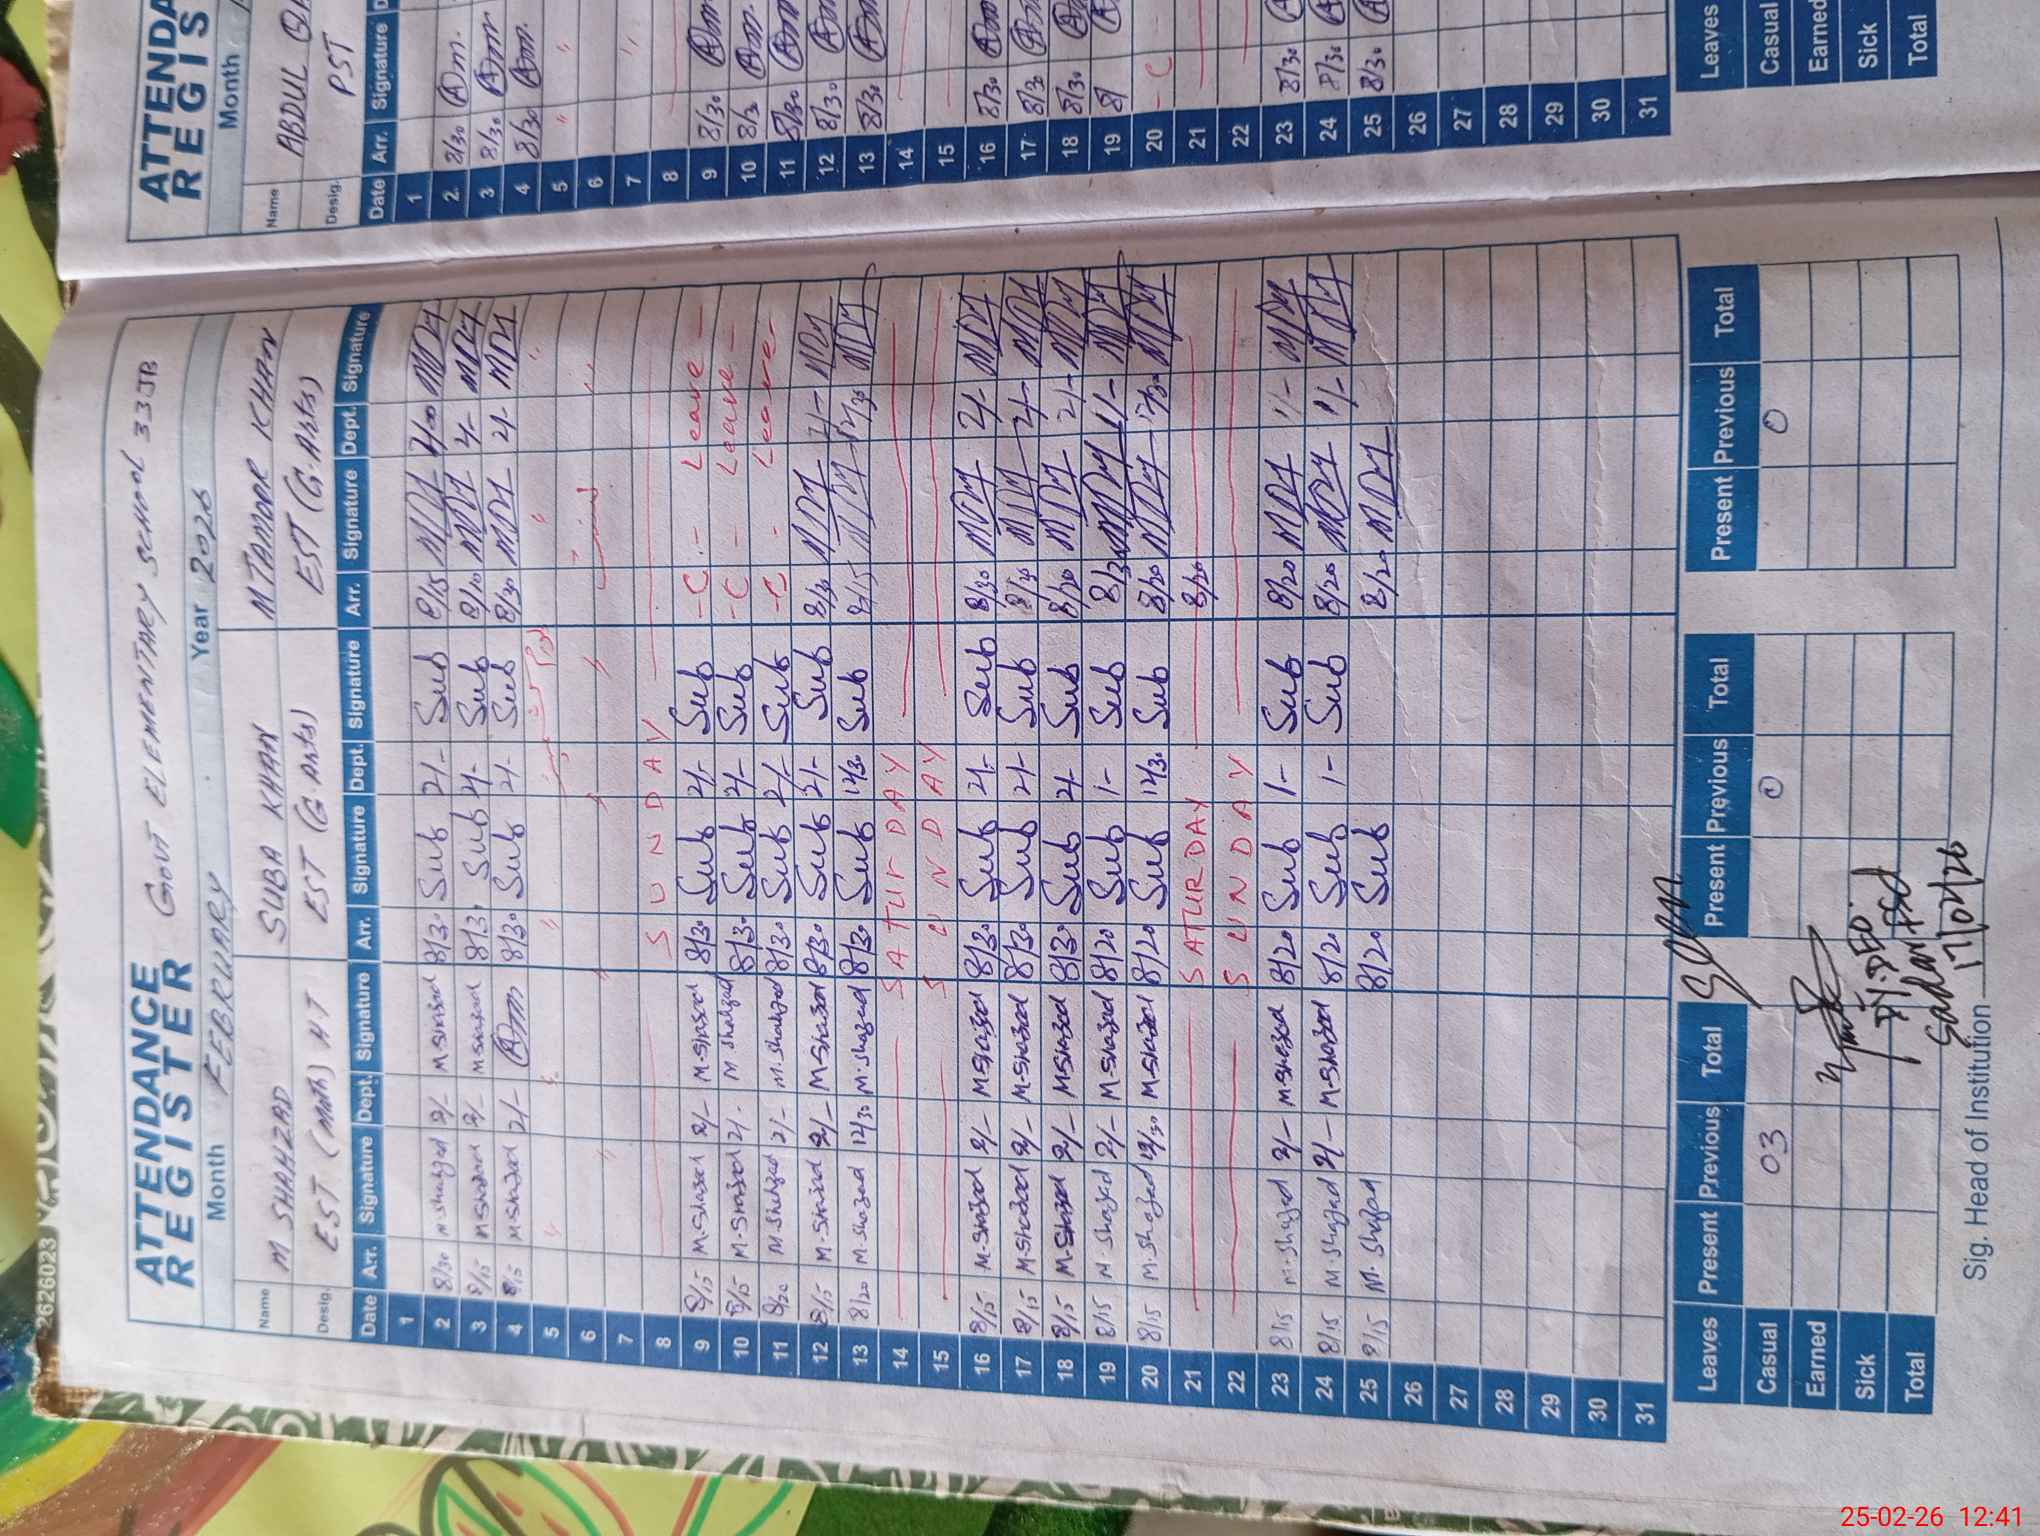 2626023
ATTENDANCE REGISTER GOVT ELEMENTARY SCHOOL 33JB
Month FEBRUARY Year 2026
Name M SHAHZAD SUBA KHAN M TAMOOR KHAN
Desig. EST (Math) HT EST (G.Arts) EST (G.Arts)
Date Arr. Signature Dept. Signature Arr. Signature Dept. Signature Arr. Signature Dept. Signature
1
2 8/30 M.Shahzad 2/- M.Shahzad 8/30 Sub 2/- Sub 8/15
3 8/15 M.Shahzad 2/- M.Shahzad 8/30 Sub 2/- Sub 8/10
4 8/15 M.Shahzad 2/- Am 8/30 Sub 2/- Sub 8/30 2/-
5 " "
6 "
7
8 SUNDAY
9 8/15 M.Shahzad 2/- M.Shahzad 8/30 Sub 2/- Sub - C - Leave -
10 8/15 M.Shahzad 2/- M.Shahzad 8/30 Sub 2/- Sub - C - Leave -
11 8/20 M.Shahzad 2/- M.Shahzad 8/30 Sub 2/- Sub - C - Leave
12 8/15 M.Shahzad 2/- M.Shahzad 8/30 Sub 2/- Sub 8/30 2/-
13 8/20 M.Shahzad 12/30 M.Shahzad 8/30 Sub 12/30 Sub 8/15 12/30
14 SATURDAY
15 SUNDAY
16 8/15 M.Shahzad 2/- M.Shahzad 8/30 Sub 2/- Sub 8/30 2/-
17 8/15 M.Shahzad 2/- M.Shahzad 8/30 Sub 2/- Sub 8/30 2/-
18 8/15 M.Shahzad 2/- M.Shahzad 8/30 Sub 2/- Sub 8/20 2/-
19 8/15 M.Shahzad 2/- M.Shahzad 8/20 Sub 1- Sub 8/20 1/-
20 8/15 M.Shahzad 12/30 M.Shahzad 8/20 Sub 12/30 Sub 8/20 12/30
21 SATURDAY 8/20
22 SUNDAY
23 8/15 M.Shahzad 2/- M.Shahzad 8/20 Sub 1- Sub 8/20 1/-
24 8/15 M.Shahzad 2/- M.Shahzad 8/20 Sub 1- Sub 8/20 1/-
25 8/15 M.Shahzad 8/20 Sub 8/20
26
27
28
29
30
31
Leaves Present Previous Total Present Previous Total Present Previous Total
Casual 03 0 0
Earned
Sick
Total
DY.DEO
17/02/26
Sig. Head of Institution
ATTENDA
REGIS
Month
Name ABDUL
Desig. PST
Date Arr. Signature D
1
2 8/30 Am
3 8/30 Am
4 8/30 Am
5 " "
6
7
8
9 8/30 Am
10 8/30 Am
11 8/30 Am
12 8/30 Am
13 8/30 Am
14
15
16 8/30 Am
17 8/30 Am
18 8/30 Am
19 8/
20 - C
21
22
23 8/30
24 8/30
25 8/30
26
27
28
29
30
31
Leaves
Casual
Earned
Sick
Total
25-02-26 12:41